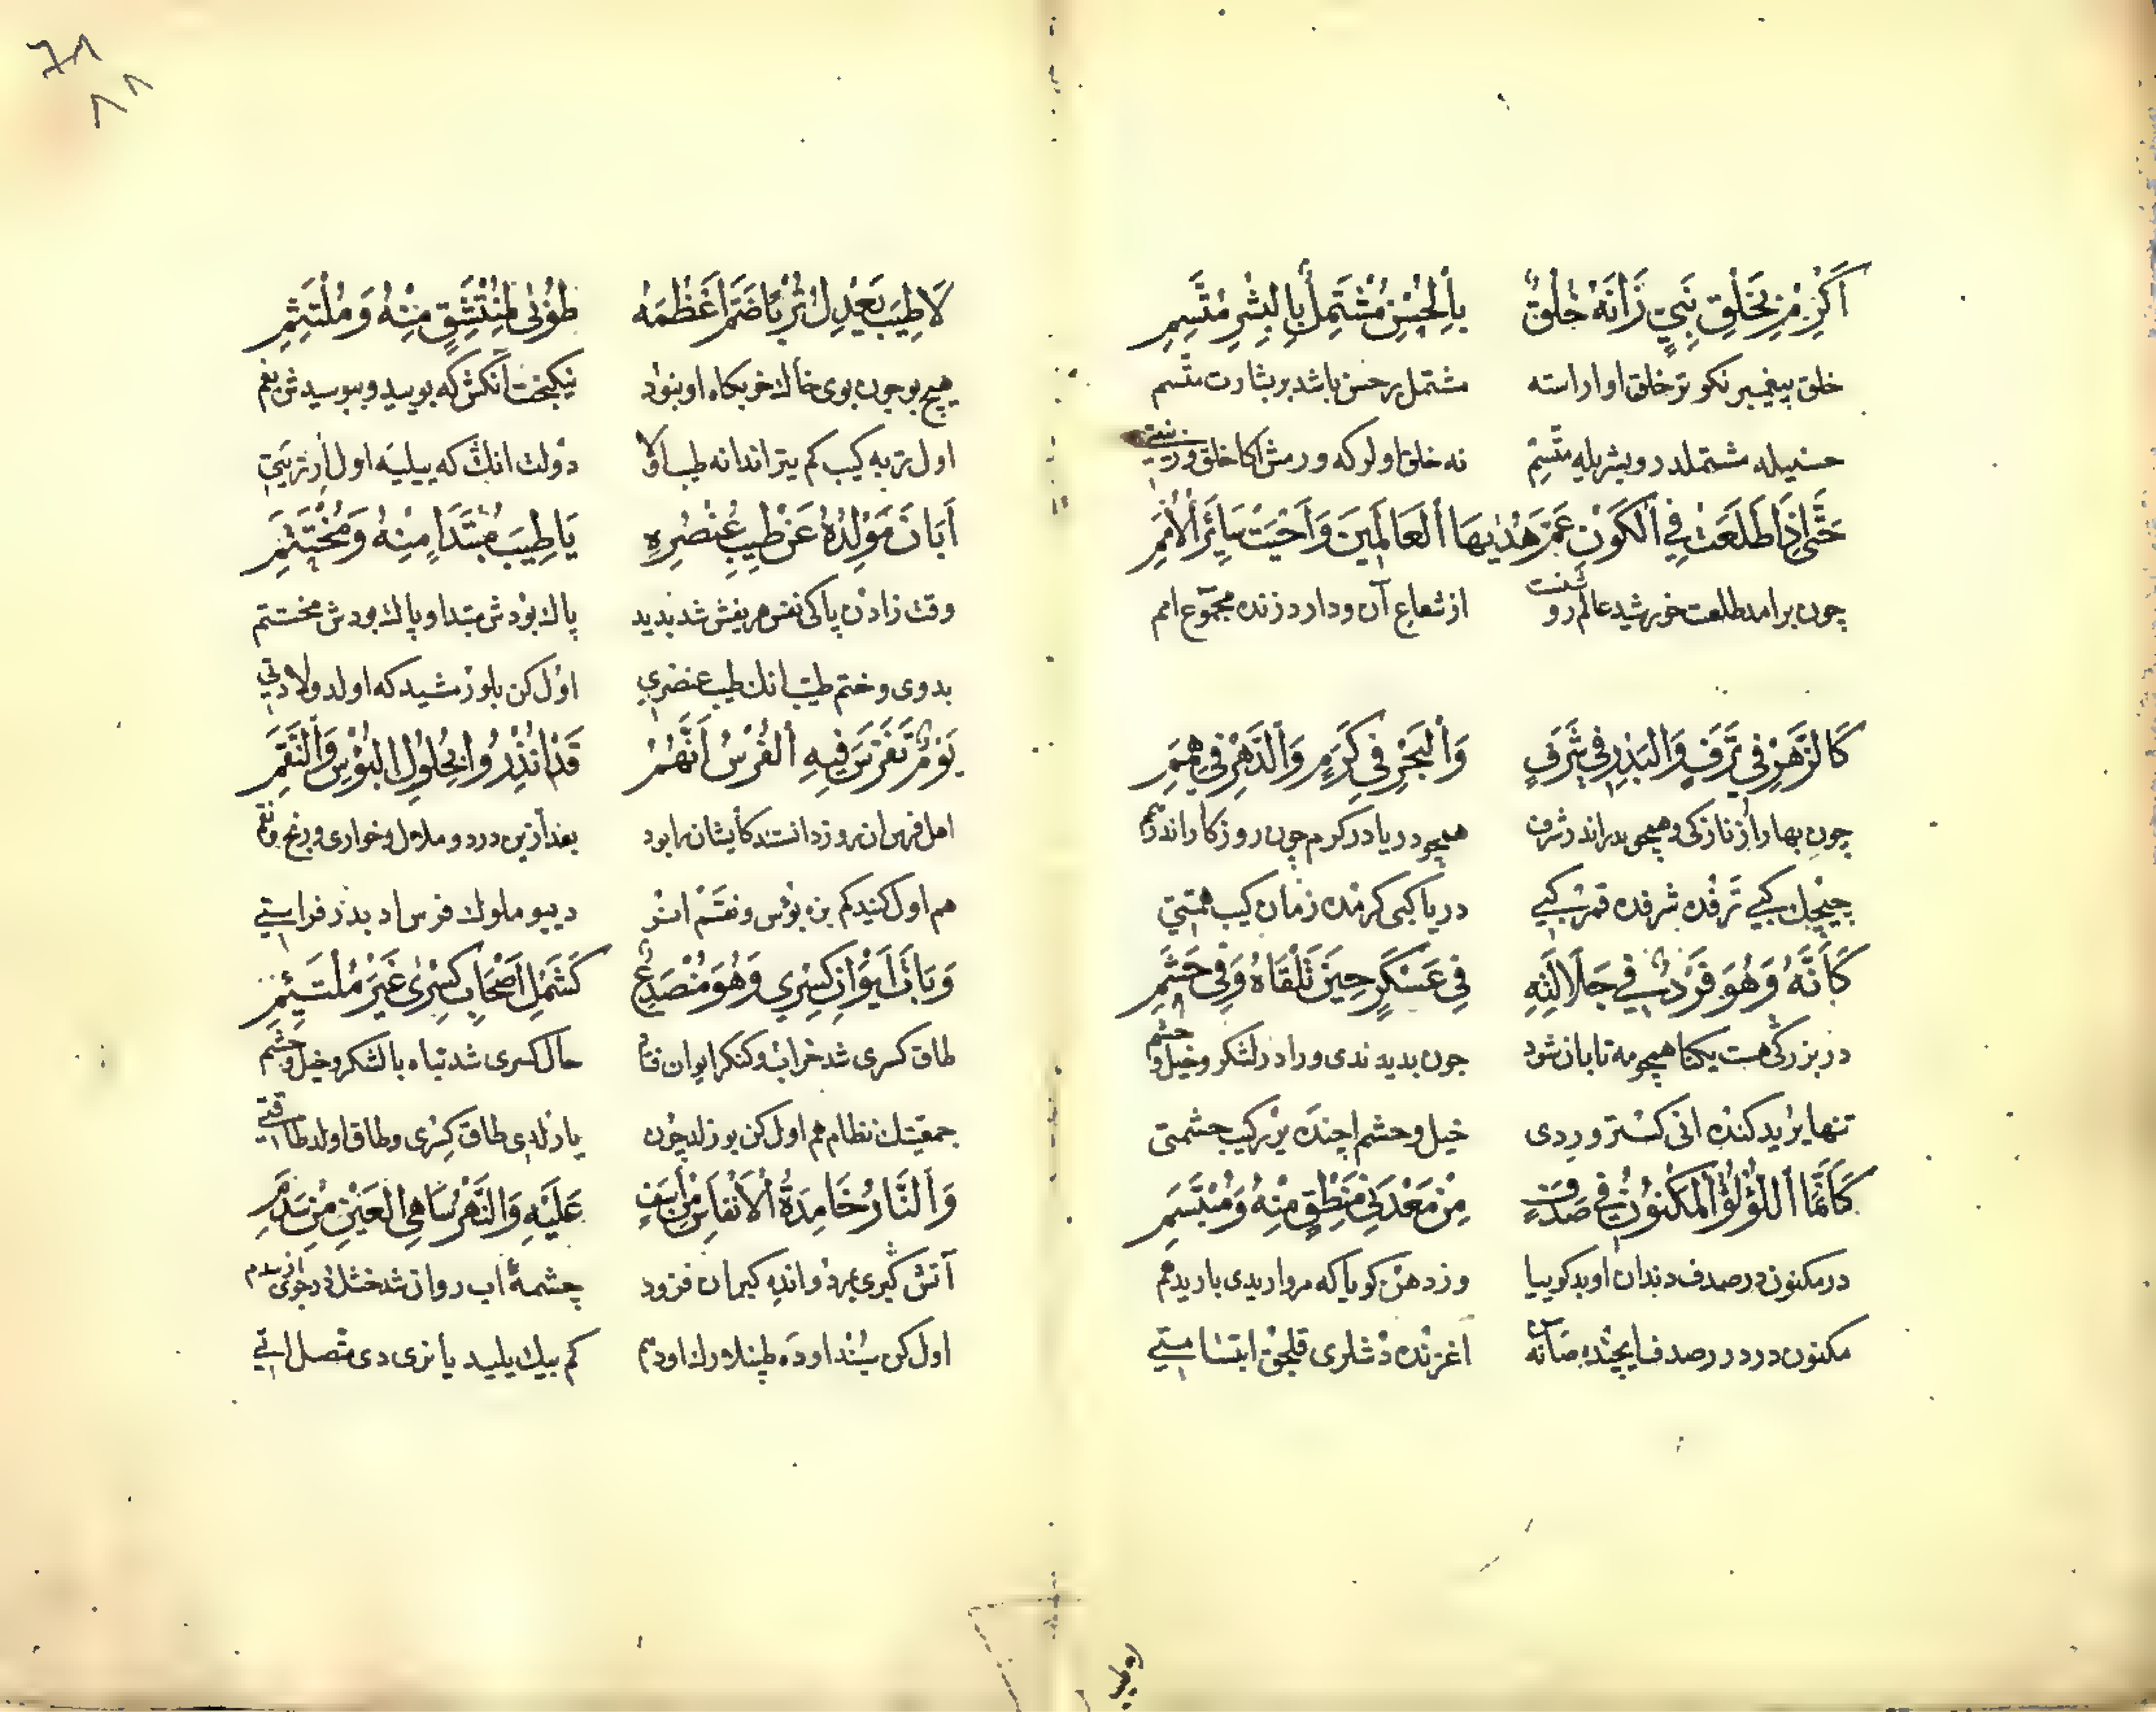 أَكْرِمْ بِخَلْقِ نَبِيٍّ زَانَهُ خُلُقٌ بِالْحُسْنِ مُشْتَمِلٌ بِالْبِشْرِ مُتَّسِمِ
خلق پیغمبر نکو تر خلق او اراسته مشتمل بر حسن باشد بر بشارت متسم
حسنیله مشتملدر و بشریله متّسم نه خلق اولر که ورمش اکا خلق
حَتَّى إِذَا طَلَعَتْ فِي الْكَوْنِ عَمَّ هُدٰيهَا الْعَالَمِينَ وَأَحْيَتْ سَائِرَ الْأُمَمِ
چون برامد طلعت خورشید عالم رو از شعاع آن ودارد زنده مجموع امم
كَالزَّهْرِ فِي تَرَفٍ وَالْبَدْرِ فِي شَرَفٍ وَالْبَحْرِ فِي كَرَمٍ وَالدَّهْرِ فِي هِمَمِ
چون بهار از نازکی و همچو بدر اندر شرف همچو دریا در کرم چون روزکار اندر
چیچك کبی ترفده شرفده قمر کبی دریا کبی کرمده زمان کیب همتی
كَأَنَّهُ وَهُوَ فَرْدٌ فِي جَلَالَتِهِ فِي عَسْكَرٍ حِينَ تَلْقَاهُ وَفِي حَشَمِ
در بزرکی هست یکتا همچو مه تابان شود چون بدید ندی ورا در لشکر و خیل و حشم
تنها یریدکنده انی کسترو ردی خیل و حشم اچنده یرر کیب حشمتی
كَأَنَّمَا اللُّؤْلُؤُ الْمَكْنُونُ فِي صَدَفٍ مِنْ مَعْدَنِيْ مَنْطِقٍ مِنْهُ وَمُبْتَسَمِ
در مکنون در صدف دندان او بد کوییا وز دهن کویا که مرواریدی باریدهم
مکنون دردر صدف ایچنده صانه اغزنده دشلری قلیجق ابتسامتی
لَا طِيبَ يَعْدِلُ تُرْبًا ضَمَّ أَعْظُمَهُ طُوبٰى لِمُنْتَشِقٍ مِنْهُ وَمُلْتَثِمِ
هیچ بو چون بوی خاك خوبکاه او نبود نیکبخت آنکش که بویید و ببوسیدش بغم
اول تربه کیب کم یتر اندانه طیب اولا دولت انك که ییلیه اول ارتربتی
أَبَانَ مَوْلِدُهُ عَنْ طِيبِ عُنْصُرِهِ يَا طِيبَ مُبْتَدَإٍ مِنْهُ وَمُخْتَتَمِ
وقت زادن پاکی نفس شریفش شد بدید پاك بودش مبتدا و پاك بودش مختتم
بدوی و ختم طیب انك طیب عنصری اول کن بلورمشیدکه اولد ولادتی
يَوْمٌ تَفَرَّسَ فِيهِ الْفُرْسُ أَنَّهُمُ قَدْ أُنْذِرُوا بِحُلُولِ الْبُؤْسِ وَالنِّقَمِ
اهل فرس ان روز دانستند کایشان را بود بعد ازین درد و ملال و خواری و رنج و نقم
هم اول کنیدکم بزه بؤس و نقم انر دیبو ملوك فرس اد بدر فراستی
وَبَاتَ أَيْوَانُ كِسْرٰى وَهُوَ مُنْصَدِعٌ كَشَمْلِ أَصْحَابِ كِسْرٰى غَيْرَ مُلْتَئِمِ
طاق کسری شد خراب و کنکر ایوان فتاد حال کسری شد تباه با لشکر و خیل و حشم
جمعیتك نظام هم اول کن بوزلد چون یارلدی طاق کسری و طاق اولد طاقتی
وَالنَّارُ خَامِدَةُ الْأَنْفَاسِ مِنْ أَسَفٍ عَلَيْهِ وَالنَّهْرُ سَاهِي الْعَيْنِ مِنْ سَدَمِ
آتش کبری بمرد و انده کبران فزود چشمهٔ اب روان شد خشك در جوی از سدم
اول کن سیندا وده طپنلارك اودم کم بیك یلید یانردی متصل